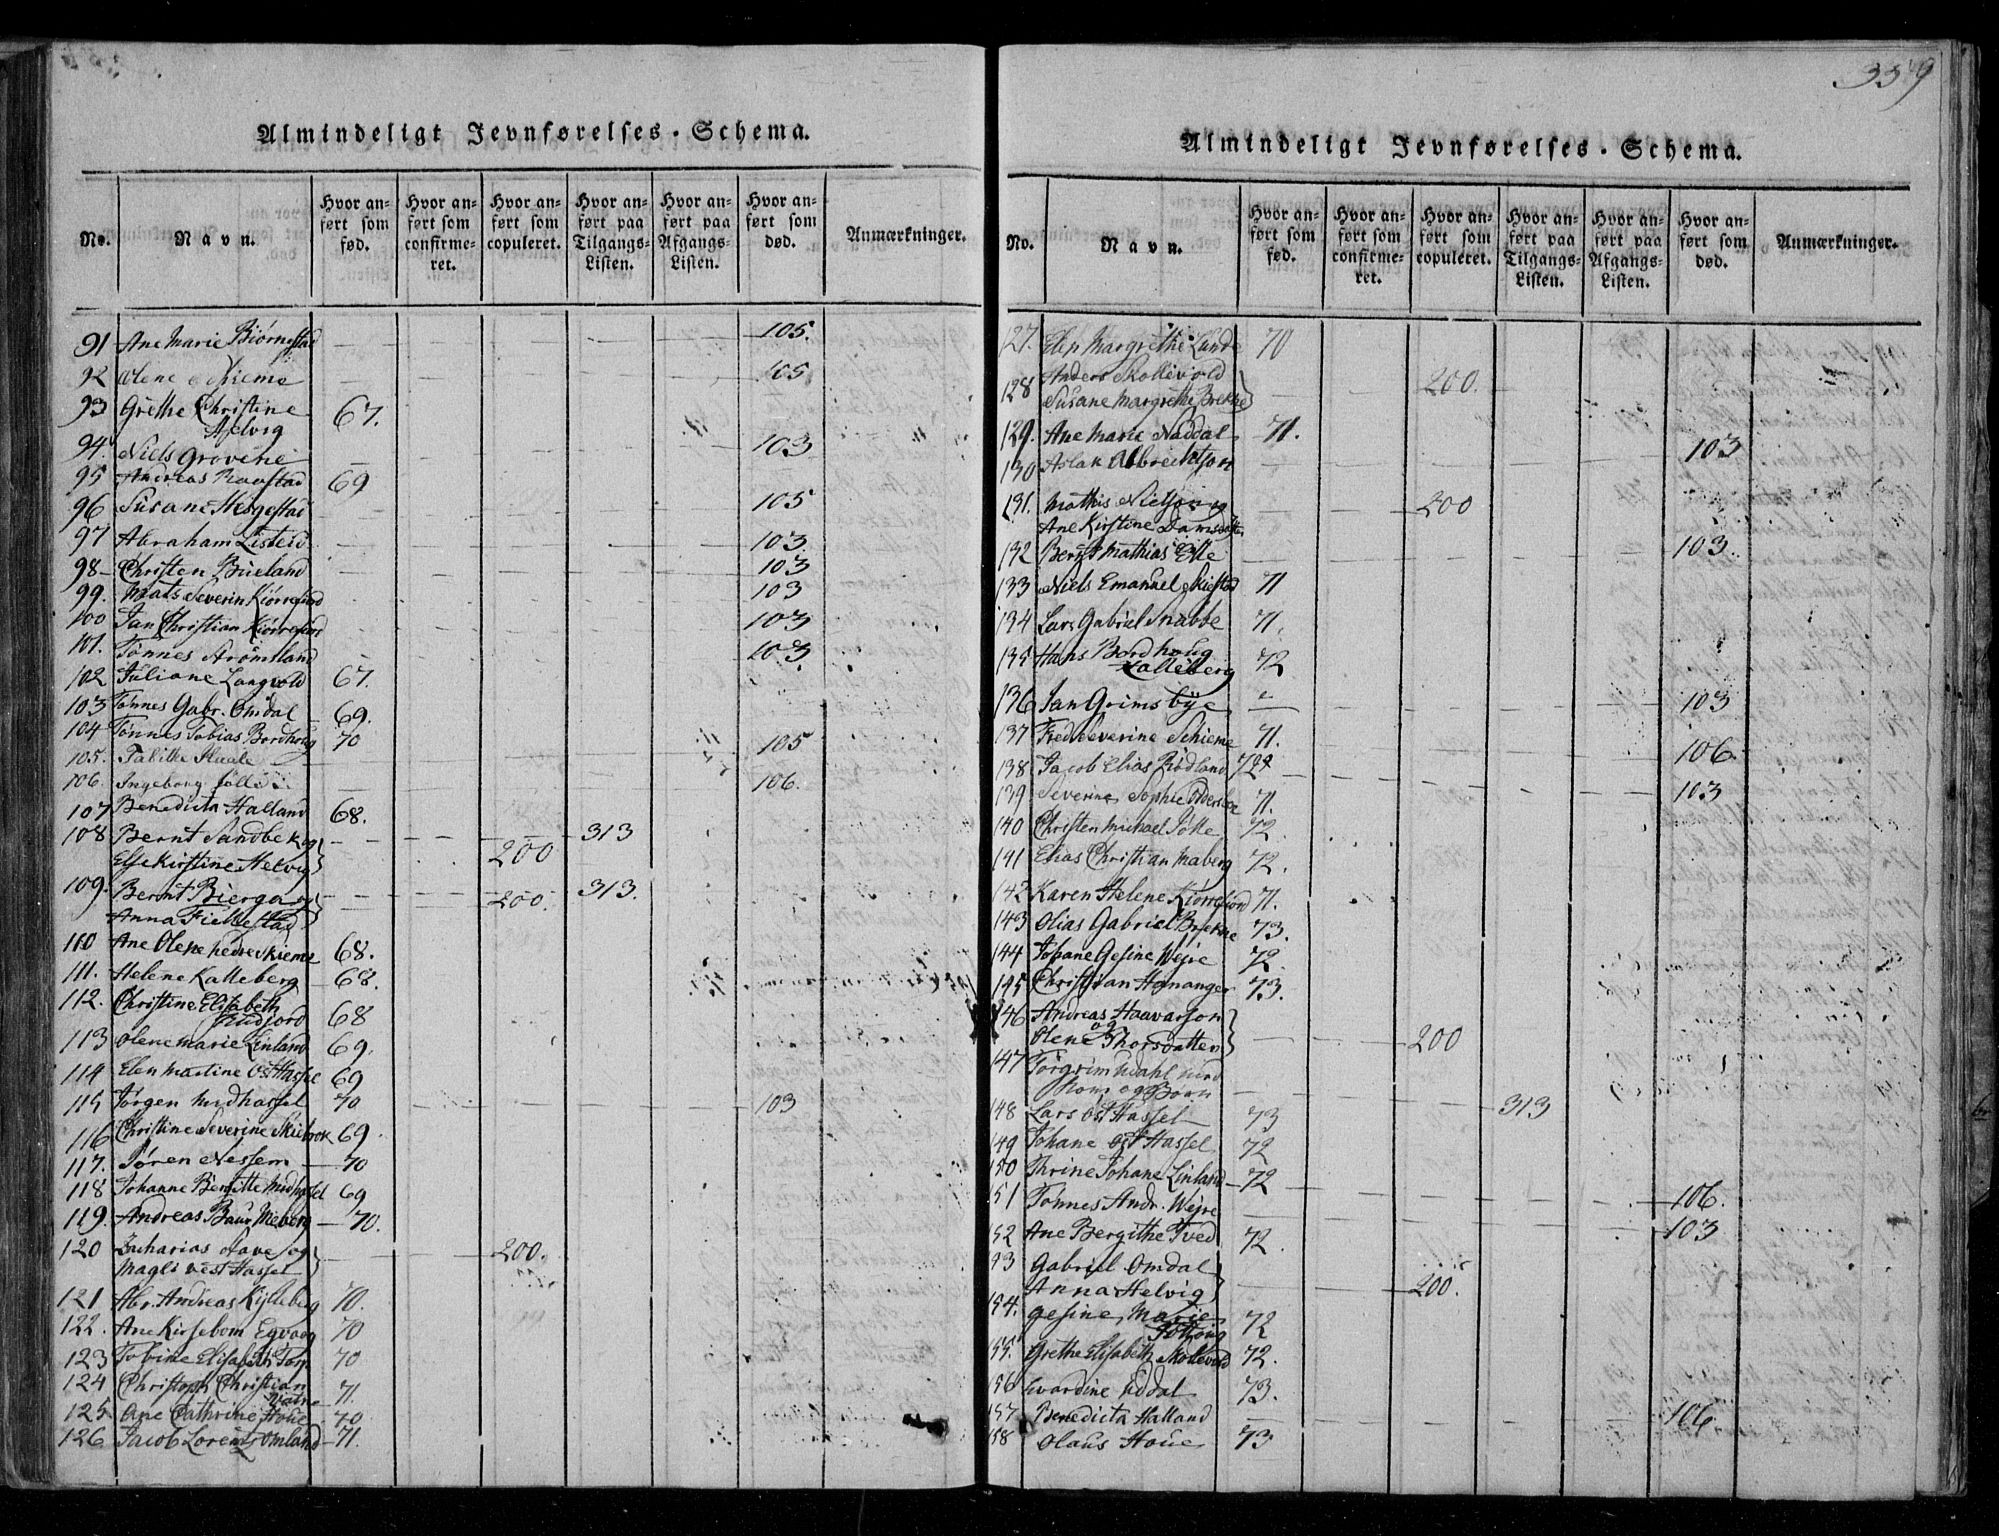 Almindeligt Jevnførelses-Schema.
No. Navn. Hvor anført som fød. Hvor anført som confirmeret. Hvor anført som copuleret. Hvor anført paa Tilgangs-Listen. Hvor anført paa Afgangs-Listen. Hvor anført som død. Anmærkninger.
91 Ane Marie Biørnestad 105.
92 Olene Skieme 105
93 Grethe Christine
Helvig 67.
94. Niels Grovene 103
95 Andreas Raastad 69
96 Susane Hergestad 105
97 Abraham Listeid 103.
98 Christen Büeland 103
99. Mats Severin Kiørrefiord 103
100 Jan Christian Kiørrefiord 103
101. Tønnes Strømland 103
102 Juliane Langvold 67.
103 Tønnes Gabr. Omdal 69.
104 Tønnes Tobias Bordhoug 70
105. Tabithe Staale 105
106. Ingeborg 106.
107 Benedicta Halland 68.
108 Bernt Sandbek og 313
Else Kirstine Helvig 200
109. Bernt Bierga og 313.
Anna Fiellestad 200.
110 Ane Olene Nedre Skieme 68.
111. Helene Kalleberg 68.
112. Christine Elisabeth
Rudjord 68
113 Olene Marie Linland 69.
114 Elen Martine Øst Hassel 69
115 Jørgen Midhassel 70 103
116 Christine Severine Skiebrok 69.
117. Søren Nessem 70
118 Johanne Bergitte Midhassel 69
119. Andreas Baur Meberg 70.
120 Zacharias Stave og
Magli Vest Hassel 200.
121 Abr. Andreas Kylleberg 70.
122. Ane Kirsebom Egvaag 70
123 Tobine Elisabeth Torp 70
124 Christoph Christian
71.
125 Ane Cathrine Houe 70
126 Jacob Lorents Omland 71.
359
Almindeligt Jevnførelses-Schema.
No. Navn. Hvor anført som fød. Hvor anført som confirmeret. Hvor anført som copuleret. Hvor anført paa Tilgangs-Listen. Hvor anført paa Afgangs-Listen. Hvor anført som død. Anmærkninger.
127. Elen Margrethe Lunde 70
128 Anders Skollevold
Susane Margrethe Brekne 200.
129. Ane Marie Naddal 71.
130 Aslak Albrechtson 103
131. Mathis Nielson og
Ane Kirstine 200
132 Bernt Mathias Elle 103.
133 Niels Emanuel Skiestad 71
134 Lars Gabriel Snabbe 71.
135 Hans Bordhoug
Kalleberg 72
136 Jan Grimsbye 103
137 Fred. Severine Schieme 71.
138 Jacob Elias Rødland 72 106
139 Severine Sophie 71. 103
140 Christen Michael 72.
141 Elias Christian Maberg 72.
142 Karen Helene Kiørrefiord 71.
143 Olias Gabriel Brekne 73.
144 Johane Gesine Weyre 72
145 Christian Hananger 73.
146 Andreas Haavarson
og
Olene Thorsdatter 200
147 Torgrim Udahl med
Kone og Børn 313
148 Lars Øst Hassel 73
149 Johane Øst Hassel 72
150 Thrine Johane Linland 72
151 Tønnes Andr. Weyre 106.
152 Ane Bergithe Tved 72. 103
153 Gabriel Omdal
Anna Helvig 200.
154. Gesine Marie
72
155. Grethe Elisabeth Skollevold 72.
156 Uddal 73.
157 Benedicta Halland 106
158 Olaus Houe 73